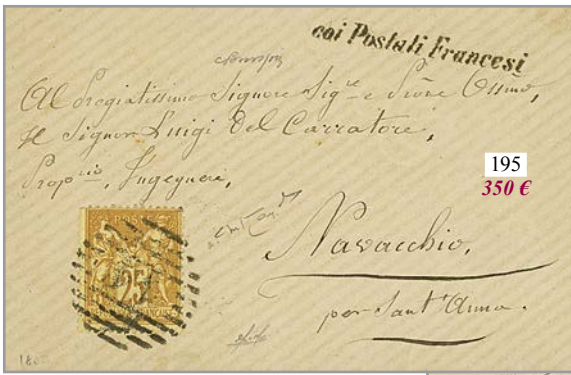 coi Postali Francesi
Al Pregiatissimo Signore Sig.re e Prone Ossmo,
Il Signor Luigi Del Carratore,
Prop.rio, Ingegnere,
195
350 €
Navacchio,
per Sant'Anna.
POSTE
25
FRANÇAISE